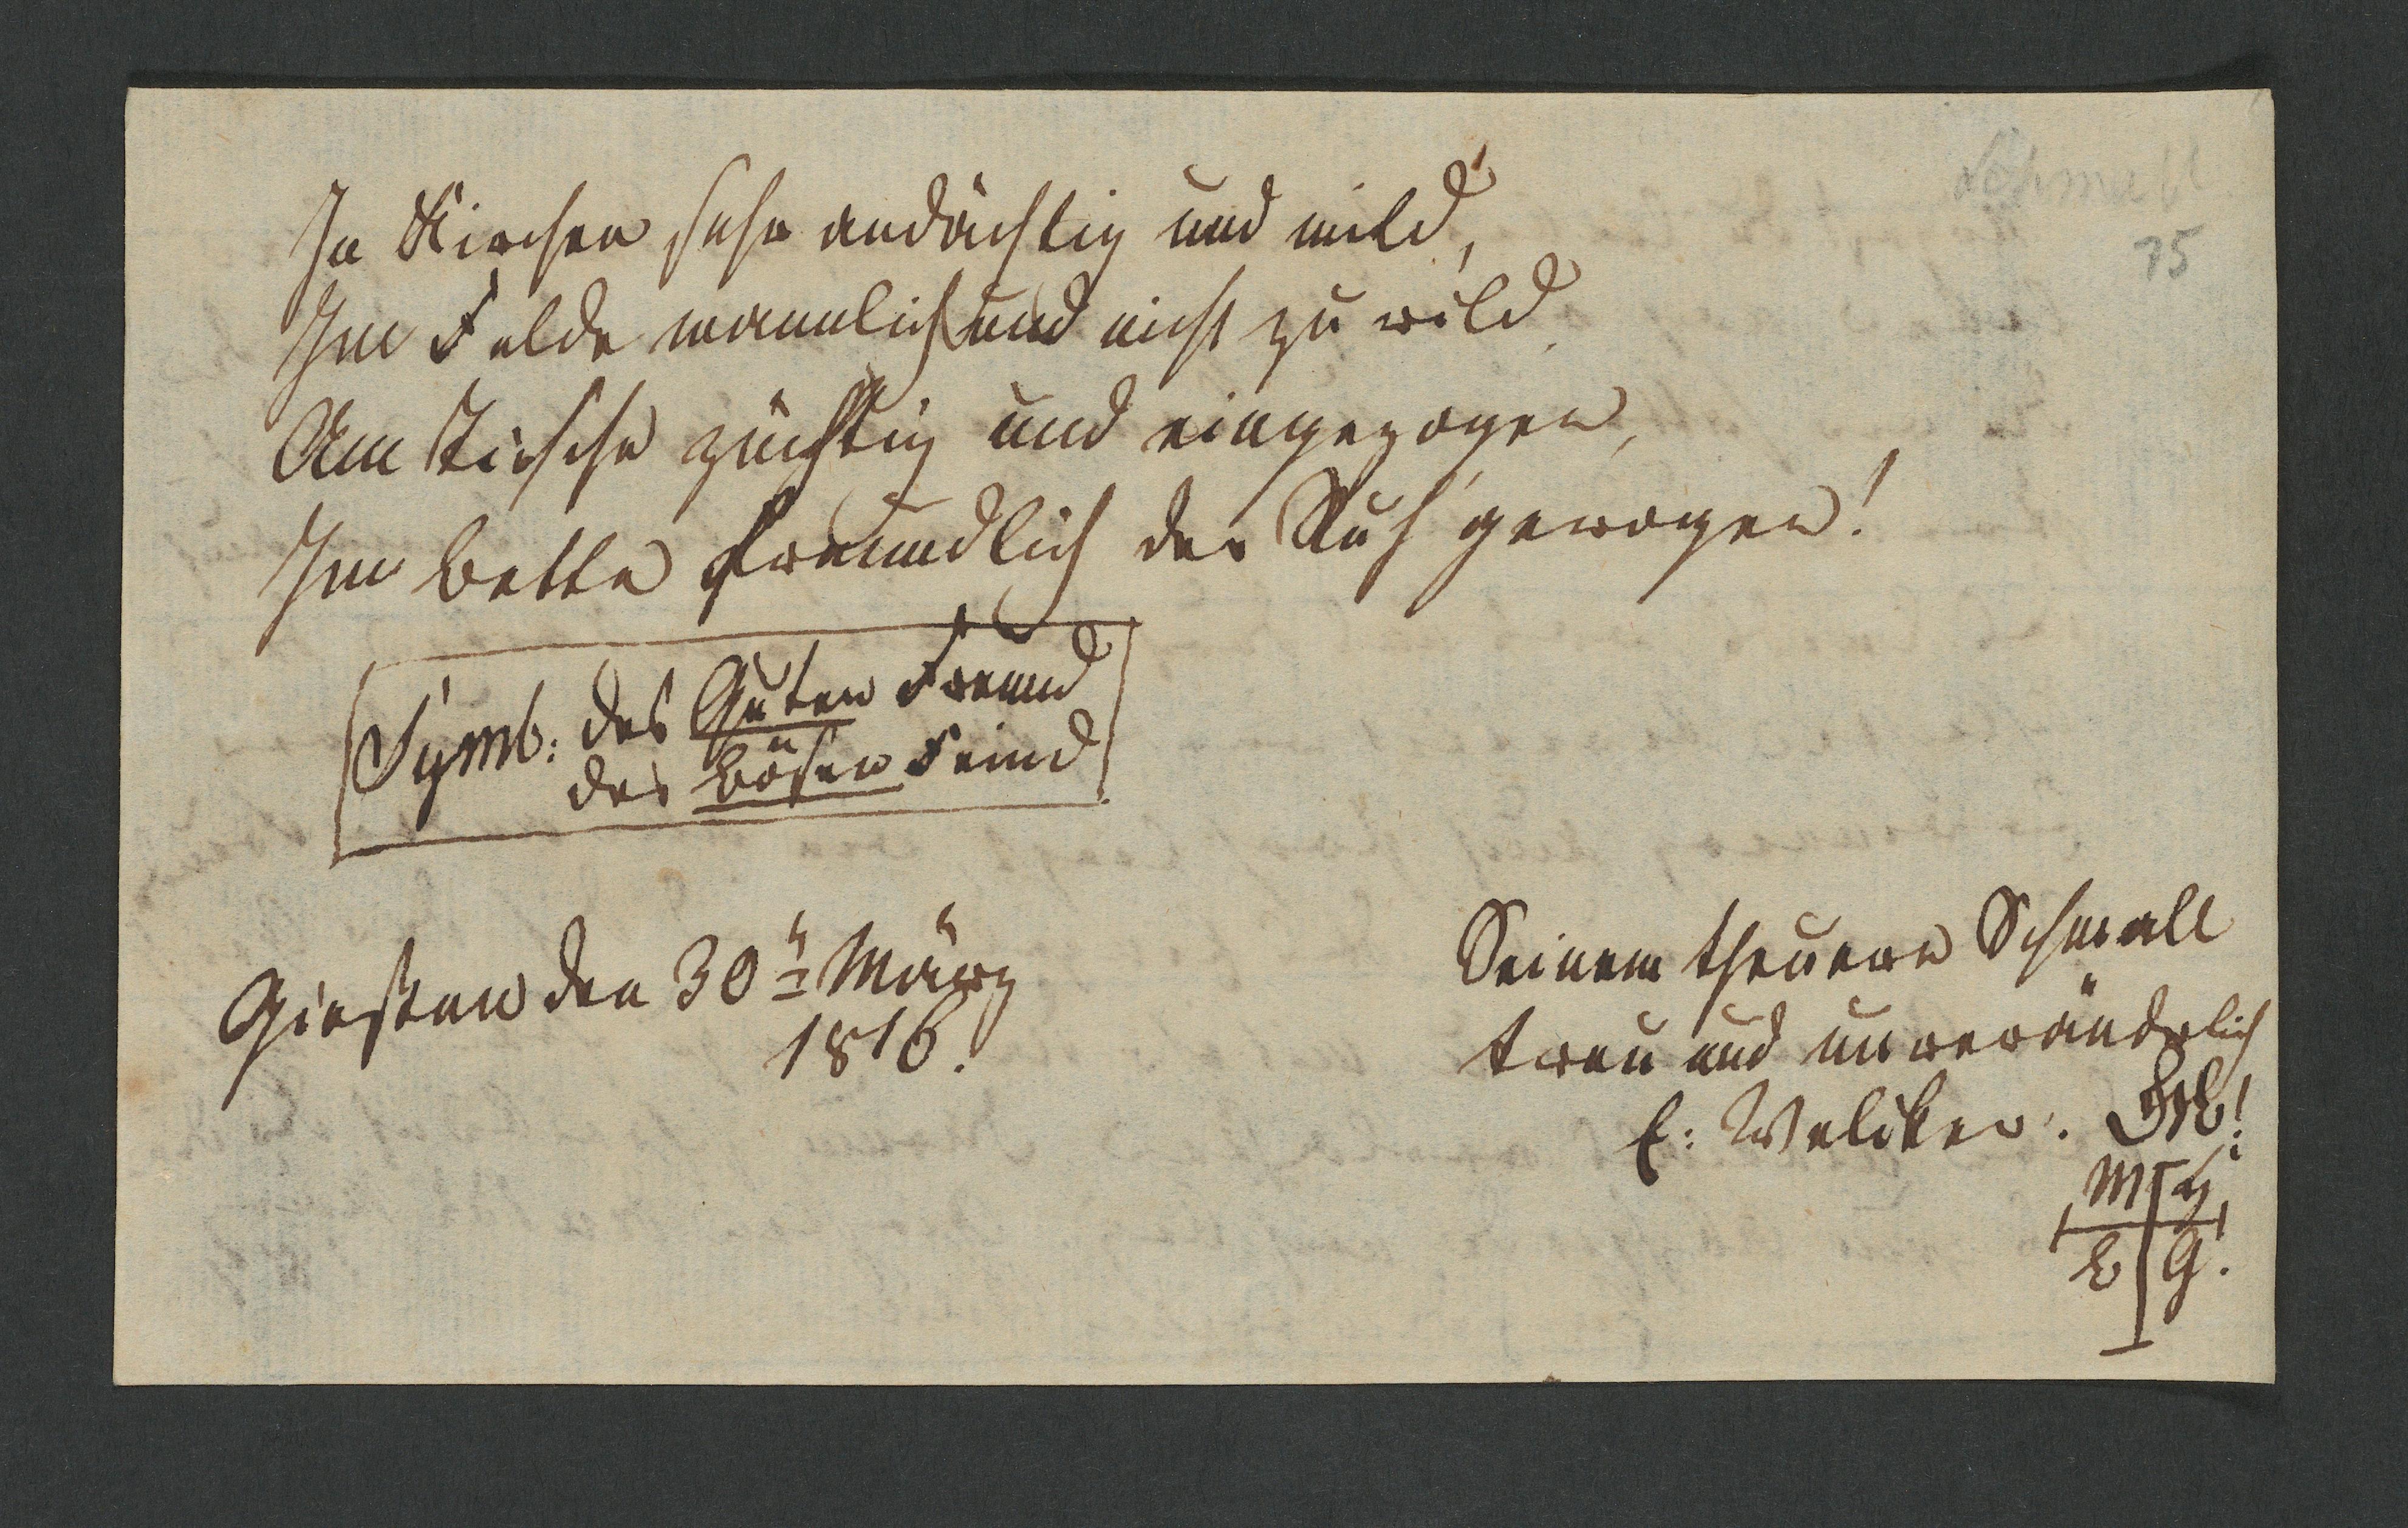 Schmall
75
In Kirchen sehr andächtig und mild,
Im Felde mannlich und nicht zu wild.
Am Tische züchtig und eingezogen,
Im Bette freundlich der Ruh gewogen!
Symb: des Guten Freund
des bösen Feind
Giesen den 30n März
1816.
Seinem theuern Schmall
treu und unveränderlich
E: Welcker.
M
E G.